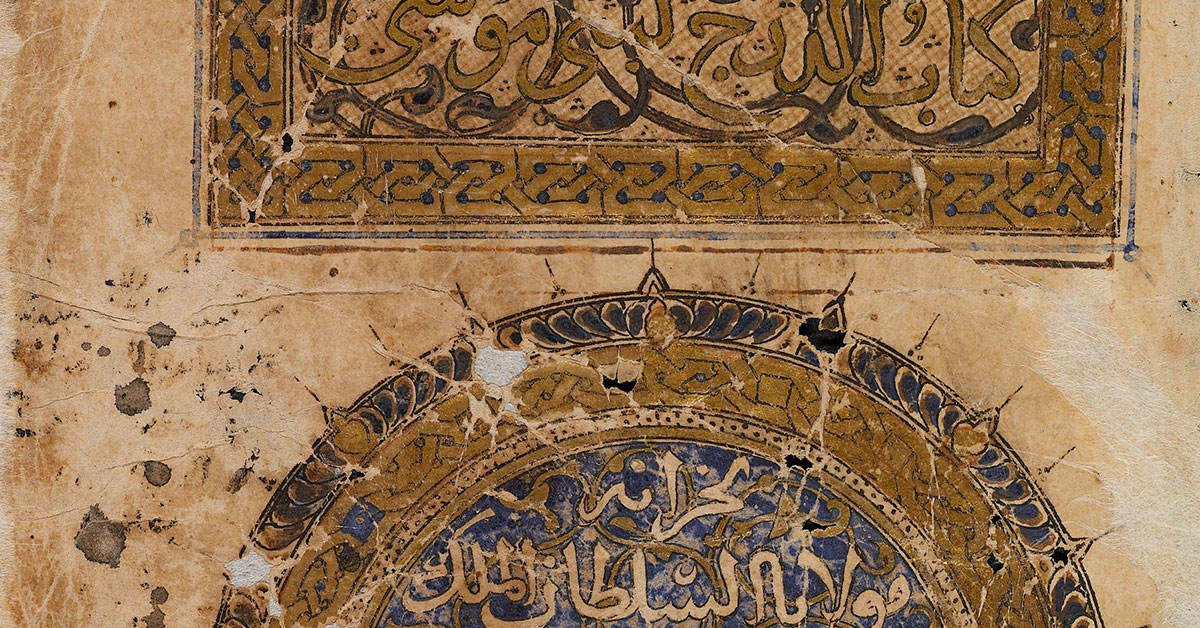 كتاب لبنى موسى
لخزانة
مولانا السلطان الملك